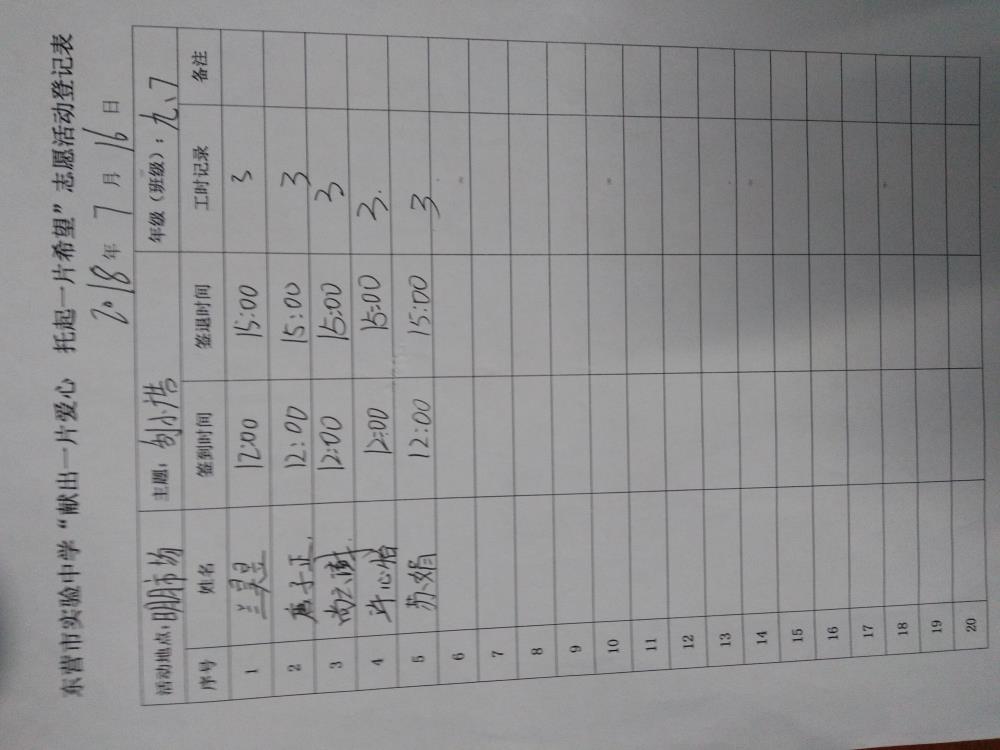 东营市实验中学“献出一片爱心 托起一片希望”志愿活动登记表
2018年 7 月 16 日
活动地点: 明月市场 主题: 年级（班级）: 九、7
序号 姓名 签到时间 签退时间 工时记录 备注
1 兰昊昱 12:00 15:00 3
2 唐子正 12:00 15:00 3
3 尚 12:00 15:00 3
4 许心怡 12:00 15:00 3.
5 苏娟 12:00 15:00 3
6
7
8
9
10
11
12
13
14
15
16
17
18
19
20